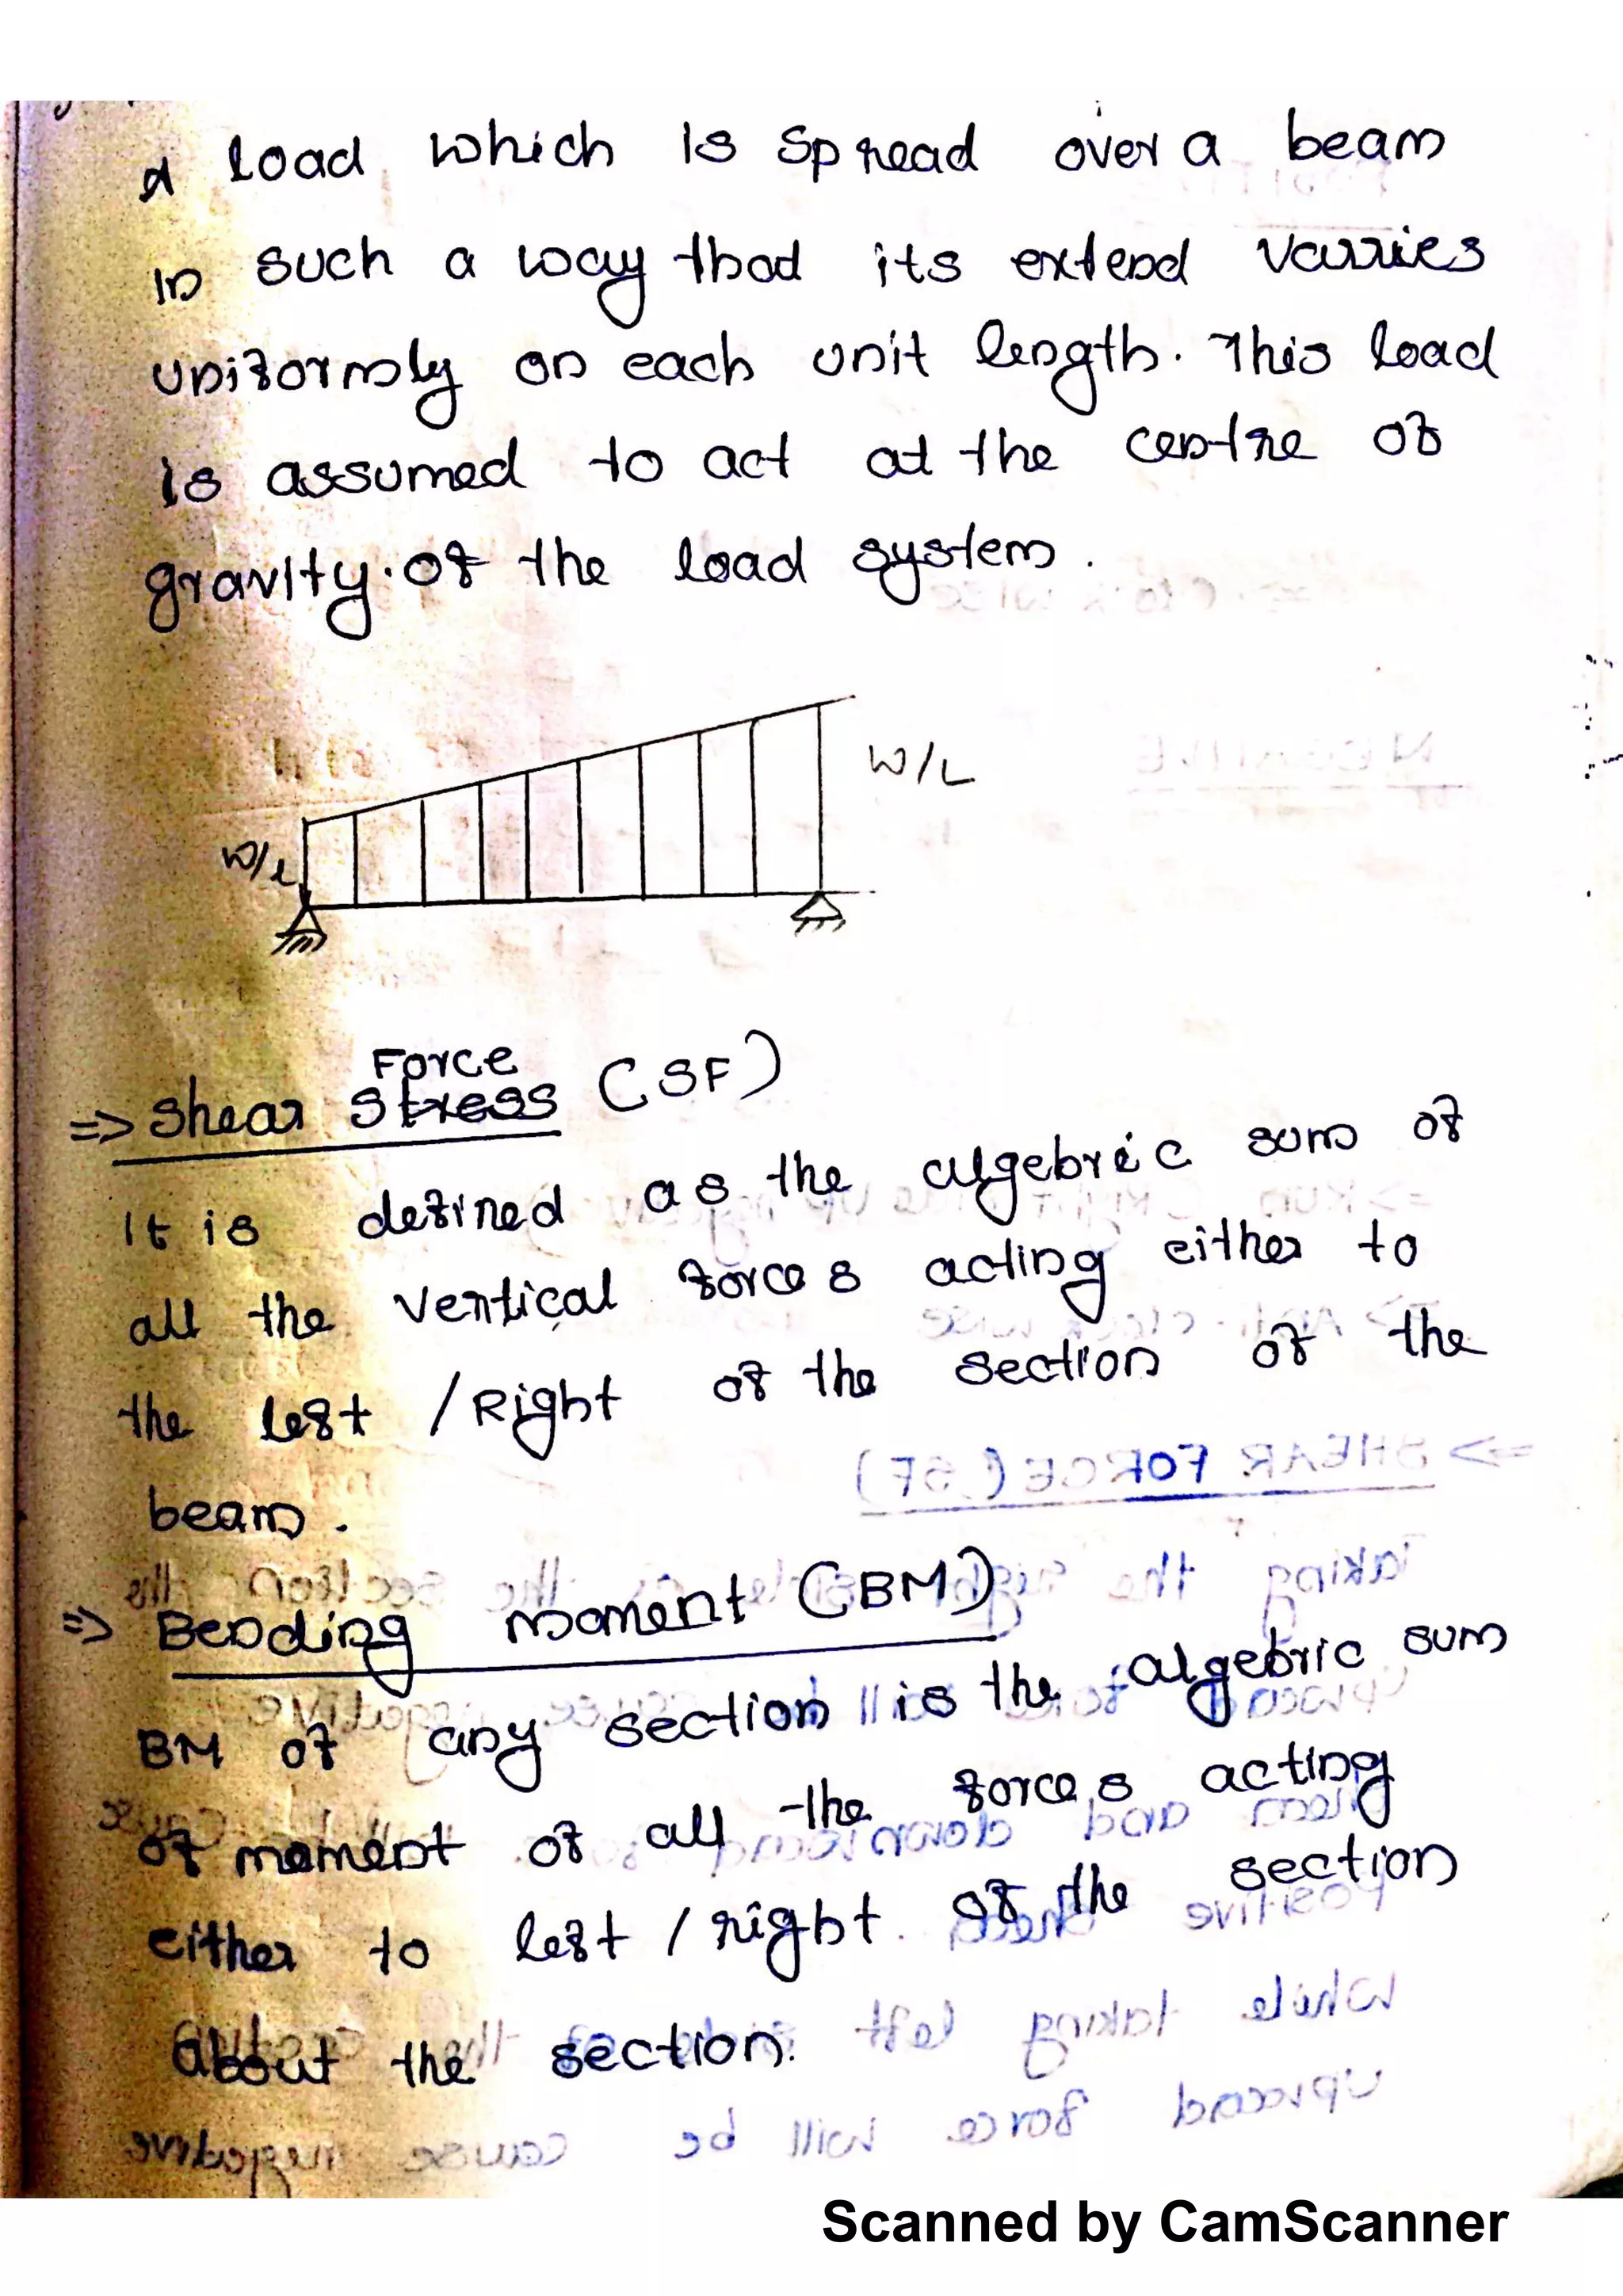 A load which is spread over a beam
in such a way that its extend varries
uniformly on each unit length. This load
is assumed to act at the centre of
gravity of the load system.
W/L
W/L
Force
=> Shear Stress (SF)
It is defined as the algebric sum of
all the vertical forces acting either to
the left / Right of the section of the
beam.
=> Bending moment (BM)
BM of any section is the algebric sum
of moment of all the forces acting
either to left / right of the section
about the section.
Scanned by CamScanner